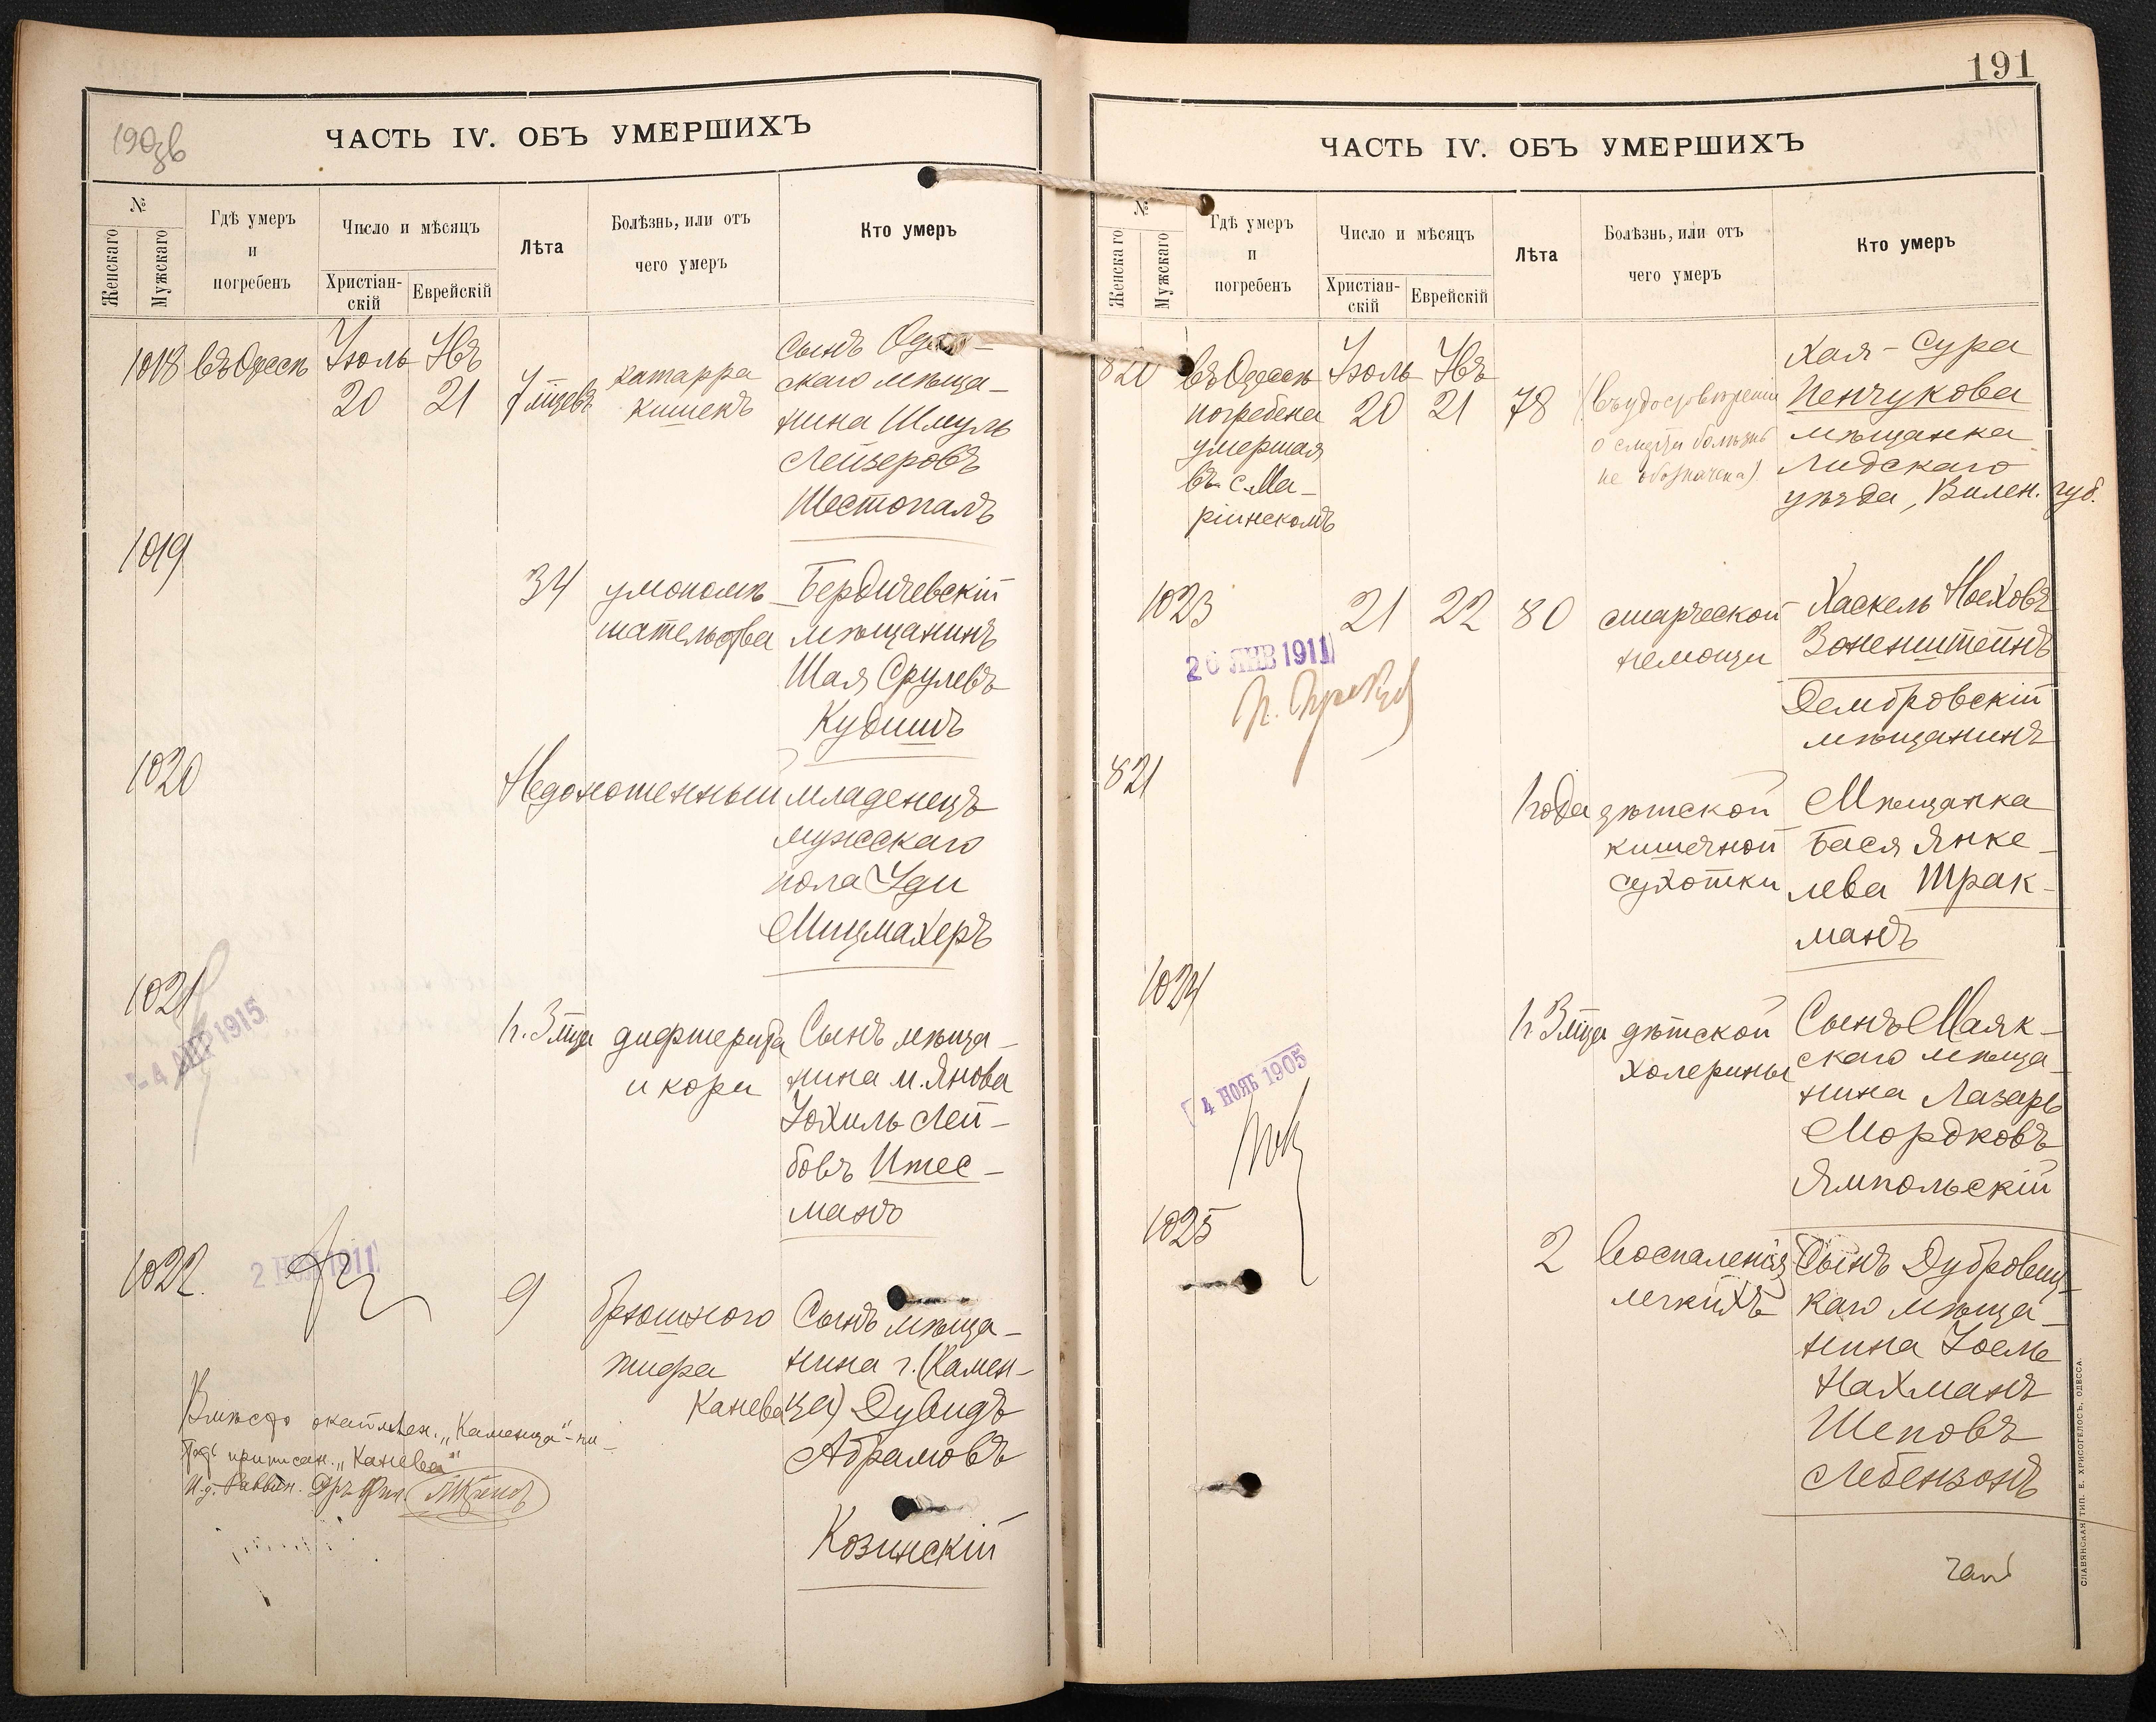 190зв
ЧАСТЬ IV. ОБЪ УМЕРШИХЪ
№
Женскаго
Мужскаго
Гдѣ умеръ
и
погребенъ
Число и мѣсяцъ
Христіан-
скій
Еврейскій
Лѣта
Болѣзнь, или отъ
чего умеръ
Кто умеръ
1018 въ Одессѣ Іюль
20
21
7 мцевъ
катарра
кишекъ
Сынъ
скаго мѣща-
нина Шмуль
Лейзеровъ
Шестопалъ
1019
34
умопомѣ-
шательства
Бердичевскій
мѣщанинъ
Шая Срулевъ
Кудишъ
1020
Недоношенный младенецъ
мужескаго
пола
Мицмахеръ
1021
- 4 АПР 1915
1г. 3 мца
дифтерита
и кори
Сынъ мѣща-
нина м. Янова
Іохиль Лей-
бовъ Итес-
манъ
1022.
2 НОЯ 1911
9
брюшного
тифа
Канева
Сынъ мѣща-
нина г. (Камен-
ца) Дувидъ
Абрамовъ
Козинскій
Вмѣсто „Каменца"
приписан. „Канева"
И. д. Раввин.
191
ЧАСТЬ IV. ОБЪ УМЕРШИХЪ
№
Женскаго
Мужскаго
Гдѣ умеръ
и
погребенъ
Число и мѣсяцъ
Христіан-
скій
Еврейскій
Лѣта
Болѣзнь, или отъ
чего умеръ
Кто умеръ
820
въ Одессѣ
погребена
умершая
въ с. Ма-
ріинскомъ
Іюль
20
21
78
(въ удостовѣреніи
о смерти болѣзнь
не обозначена)
Хая-Сура
Пенчукова
мѣщанка
Лидскаго
уѣзда, Вилен. губ.
1023
20 ЯНВ 1911
21
22
80
старческой
немощи
Хаскель Ноеховъ
Зоненштейнъ
Домбровскій
мѣщанинъ
821
1 года
дѣтской
кишечной
сухотки
Мѣщанка
Бася Янке-
лева Трак-
манъ
1024
4 НОЯБ 1905
1г 3 мца
дѣтской
холерины
Сынъ Маяк-
скаго мѣща-
нина Лазарь
Мордковъ
Ямпольскій
1025
2
воспаленія
легкихъ
Сынъ Дубровиц-
каго мѣща-
нина Іоель
Нахманъ
Шеповъ
Лебензонъ
СЛАВЯНСКАЯ ТИП. Е. ХРИСОГЕЛОСЪ, ОДЕССА.